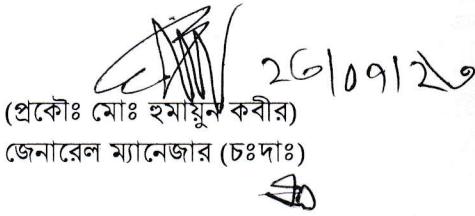 ২৬/০৭/২৩
(প্রকৌঃ মোঃ হুমায়ুন কবীর)
জেনারেল ম্যানেজার (চঃদাঃ)